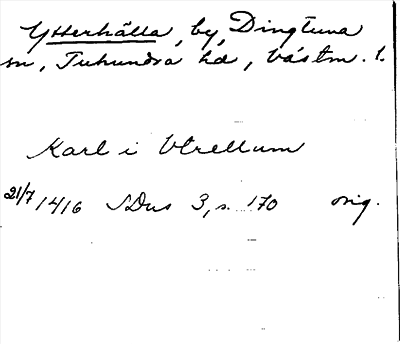 Ytterhälla, by, Dingtuna
sn, Tuhundra hd, Västm. l.
Karl i Vtrellum
21/7 1416 SDns 3, s. 170 orig.